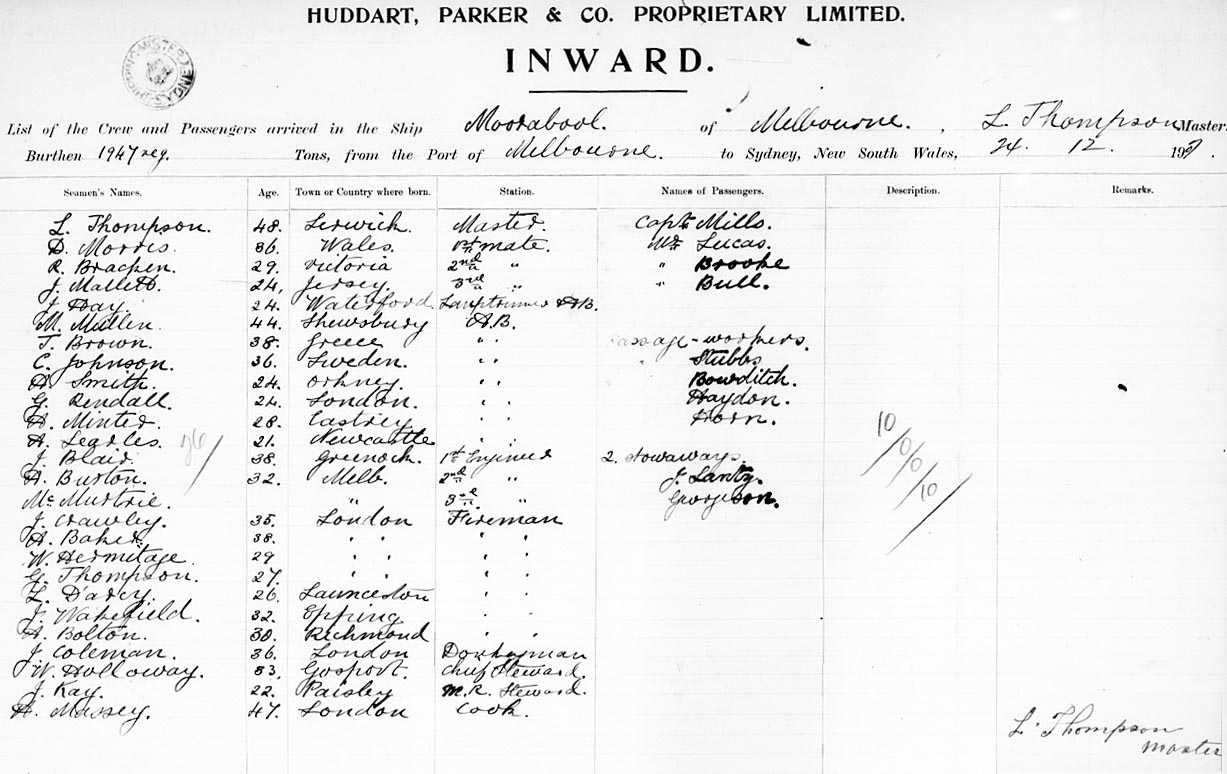 HUDDART, PARKER & CO. PROPRIETARY LIMITED.
INWARD.
List of the Crew and Passengers arrived in the Ship Moorabool. of Melbourne. , L. Thompson Master,
Burthen 1947 reg. Tons, from the Port of Melbourne. to Sydney, New South Wales, 24. 12. 190
Seamen's Names. Age. Town or Country where born. Station. Names of Passengers. Description. Remarks.
L. Thompson. 48. Lerwick. Master. Capt. Mills.
D. Morris. 36. Wales. 1st mate. Mr. Lucas.
R. Bracken. 29. Victoria 2nd " " Brooke
J. Mallett. 24. Jersey. 3rd " " Bull.
J. Day. 24. Waterford. Lamptrimmer & A.B.
M. Mullen. 44. Shewsbury A.B.
T. Brown. 38. Greece " Passage-workers.
C. Johnson. 36. Sweden. " " Stubbs
A. Smith. 24. Orkney. " " Bowditch.
G. Rendall. 24. London. " " Haydon.
A. Minter. 28. Eastrey " " Horn.
A. Searles. 21. Newcastle " "
J. Blair 38. Greenock. 1st Engineer 2. Stowaways.
A. Burton. 32. Melb. 2nd " J. Lanty.
McMurtrie. " 3rd " Georgeson.
J. Crawley. 35. London Fireman
A. Baker. 38. " " " "
W. Hermitage. 29 " " " "
G. Thompson. 27. " " " "
L. Darcy. 26. Launceston " "
J. Wakefield. 32. Epping " "
A. Bolton. 30. Richmond " "
J. Coleman. 36. London Donkeyman
W. Holloway. 33. Gosport. Chief Steward.
J. Kay. 22. Paisley M.R. Steward.
A. Massey. 47. London Cook.
10/0/0/10/
L. Thompson
Master